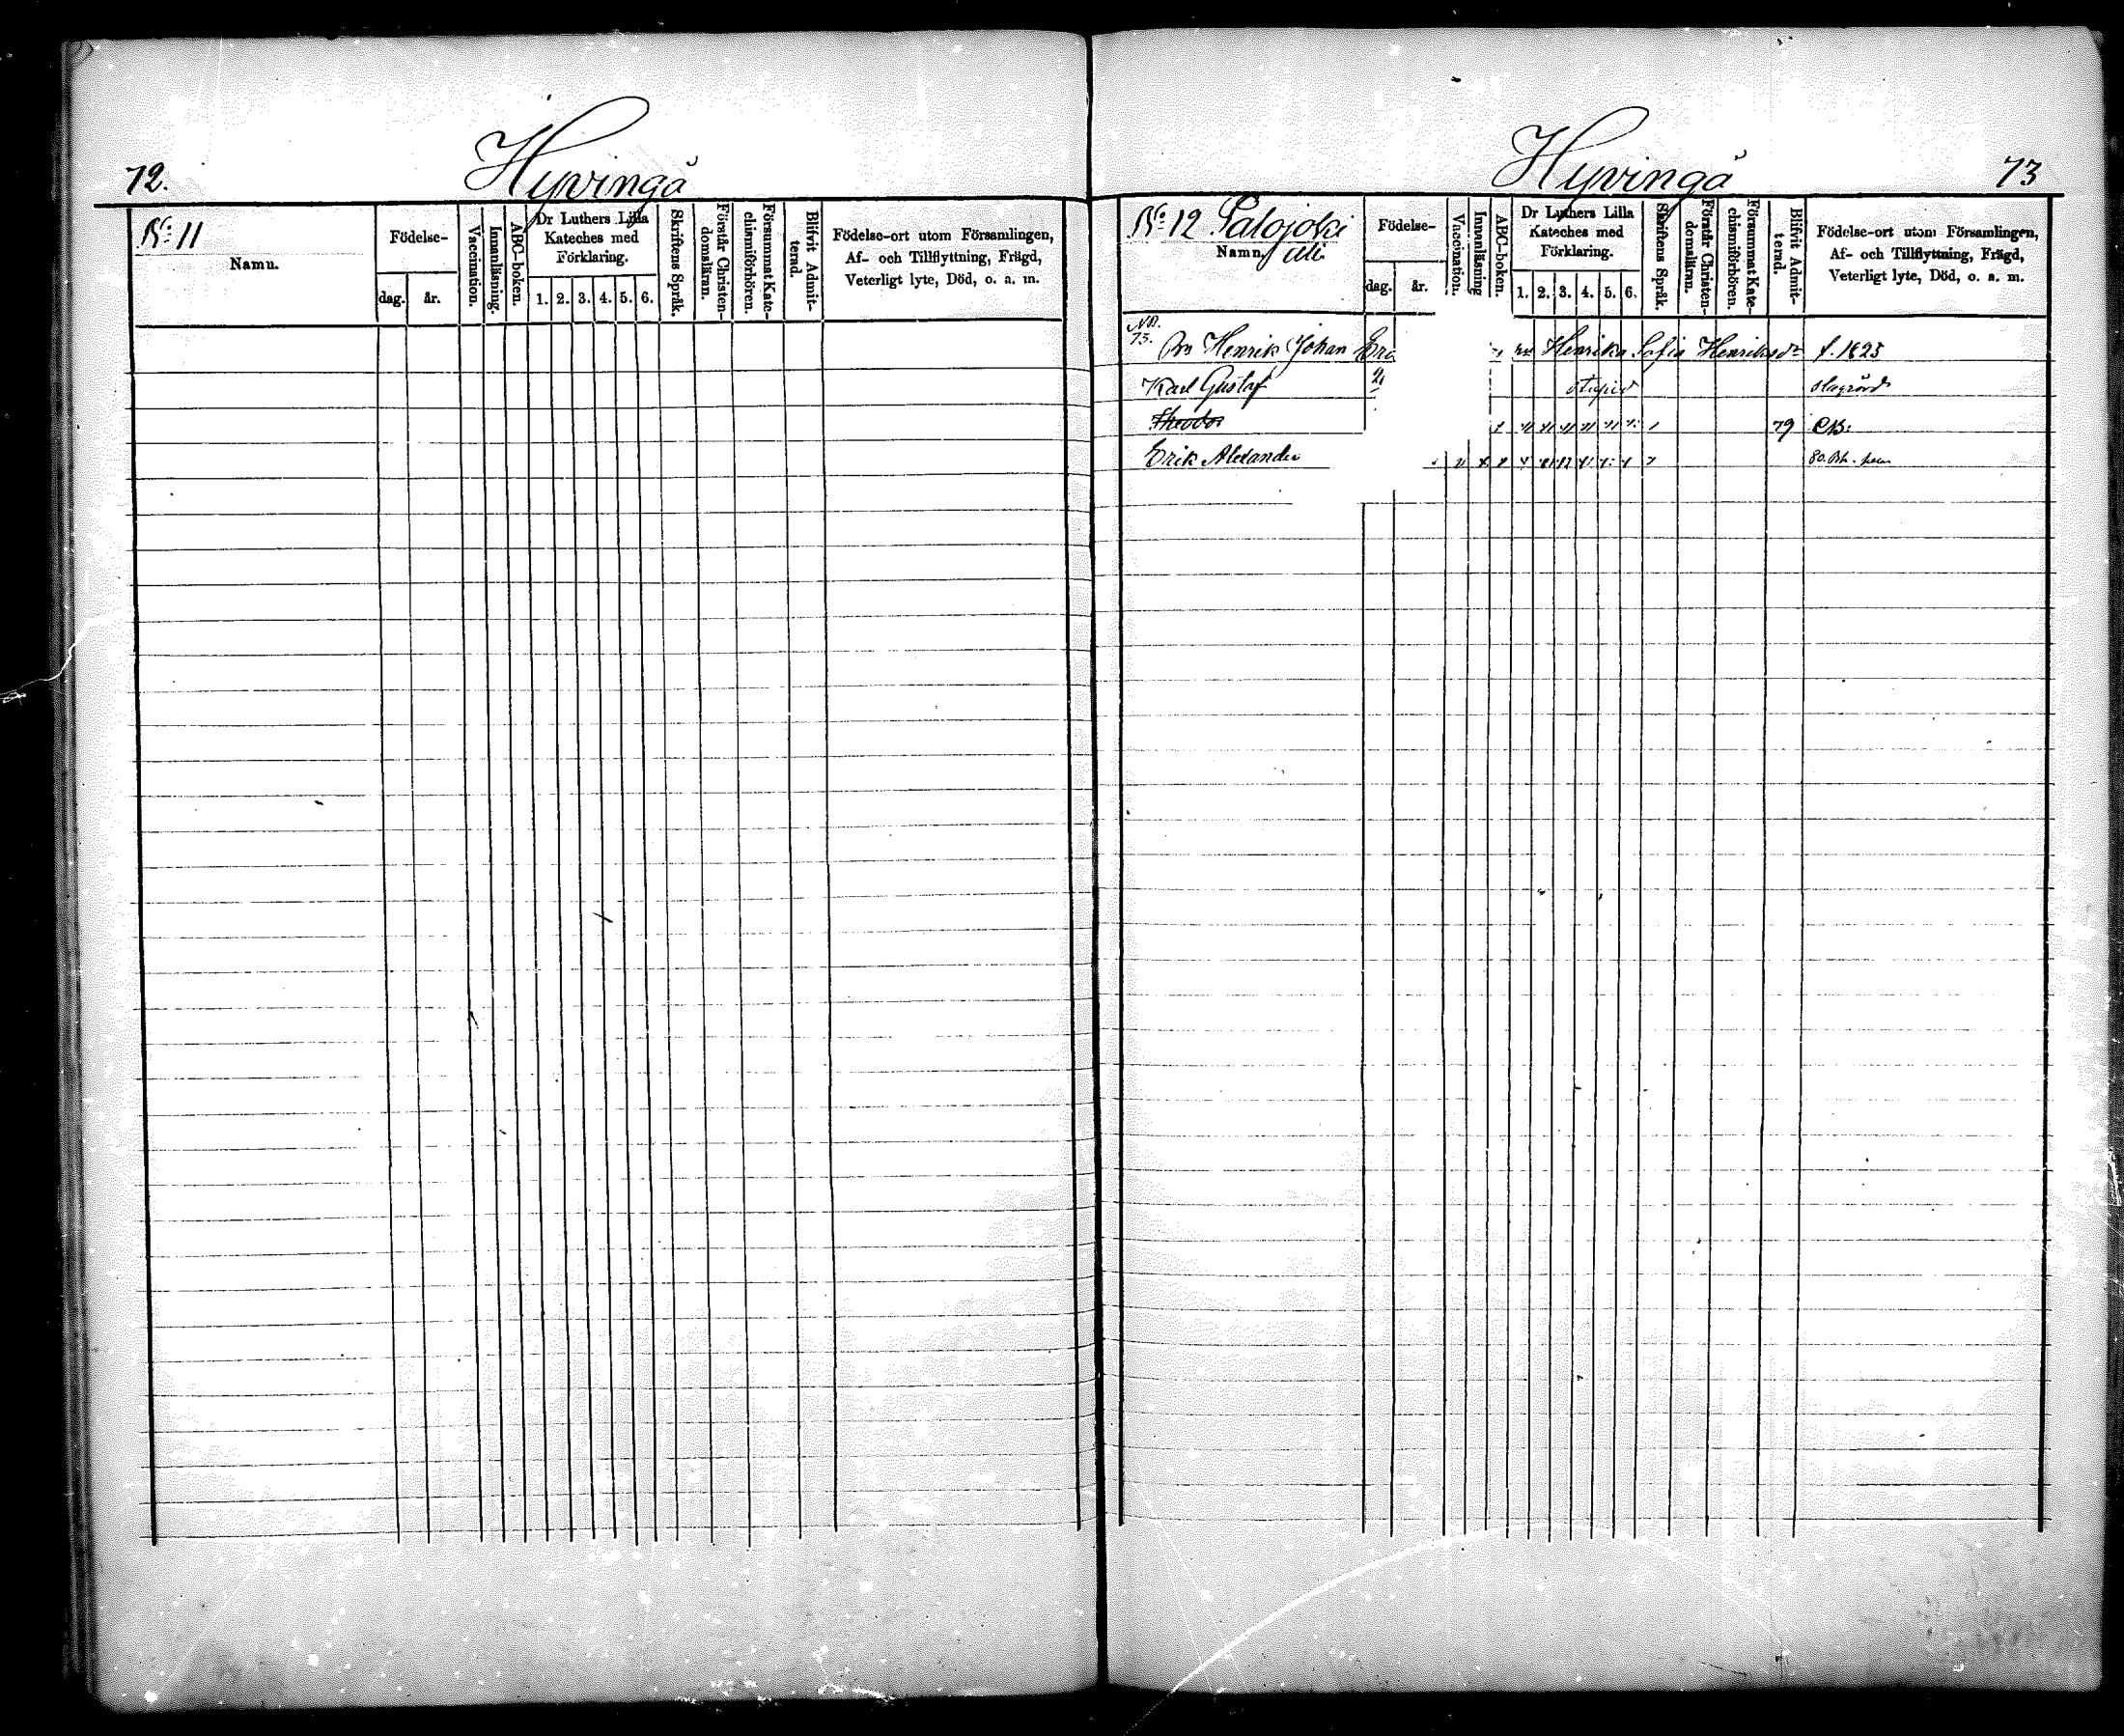 72.
Hyvingå
N:o 11
Namn.
Födelse-
dag.
år.
Vaccination.
Innanläsning.
ABC-boken.
Dr Luthers Lilla
Kateches med
Förklaring.
1. 2. 3. 4. 5. 6.
Skriftens Språk.
Förstår Christen-
domsläran.
Försummat Kate-
chismiförhören.
Blifvit Admit-
terad.
Födelse-ort utom Församlingen,
Af- och Tillflyttning, Frägd,
Veterligt lyte, Död, o. a. m.
Hyvingå
73
N:o 12 Palojoki
Namn.
Födelse-
dag.
år.
Vaccination.
Innanläsning
ABC-boken.
Dr Luthers Lilla
Kateches med
Förklaring.
1. 2. 3. 4. 5. 6.
Skriftens Språk.
Förstår Christen-
domsläran.
Försummat Kate-
chismiförhören.
Blifvit Admit-
terad.
Födelse-ort utom Församlingen,
Af- och Tillflyttning, Frägd,
Veterligt lyte, Död, o. a. m.
73. Henrik Johan Henrika Sofia Henriksdr f. 1825
Karl Gustaf
Theodor 79
Erik Alexander 80.